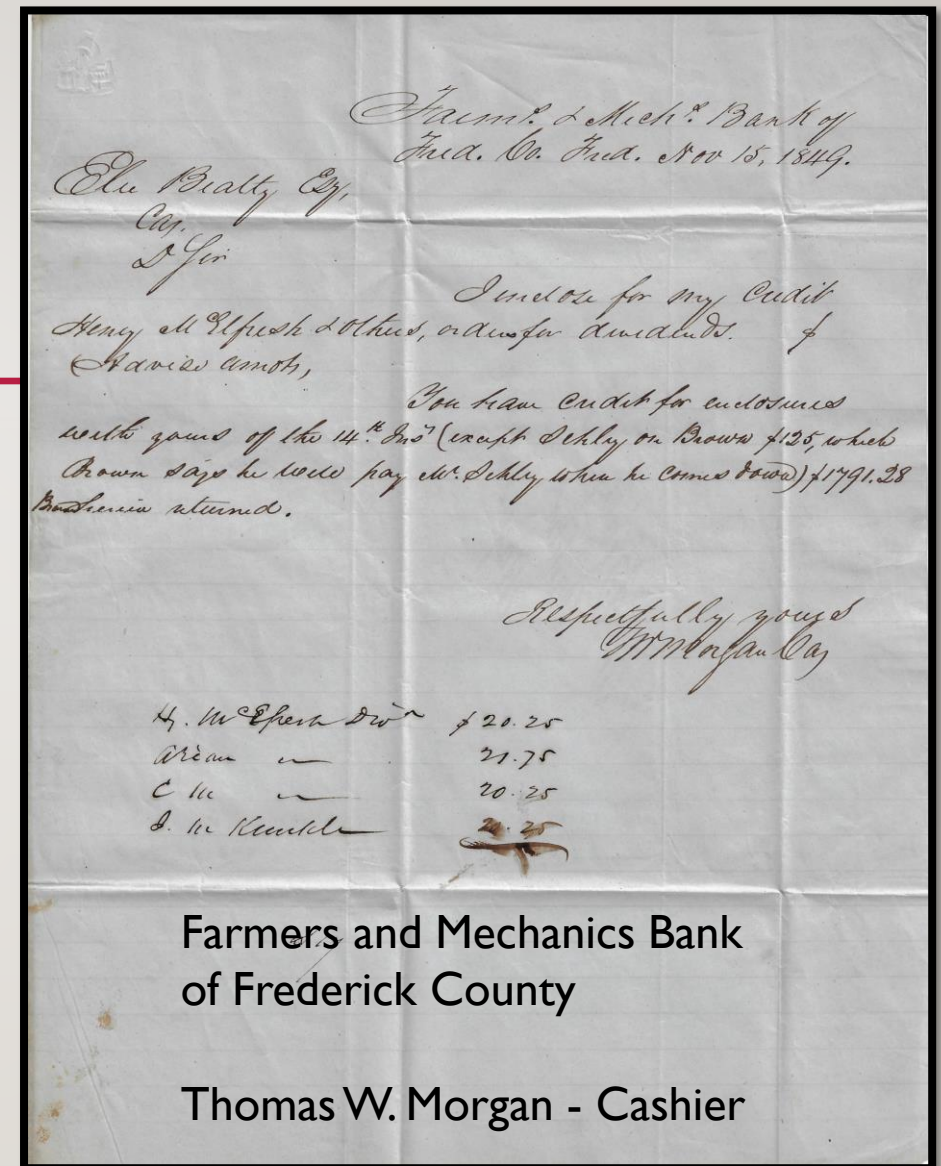 Farmrs. & Mechs. Bank of
Fred. Co. Fred. Nov 15, 1849.
Elie Beatty Esq,
Cas.
D Sir
I inclose for my credit
Henry McElfresh & others, orders for dividends. $
(Advise amots,
You have credit for enclosures
with yours of the 14th. Inst (except Schley on Brown $125, which
Brown says he will pay Mr. Schley when he comes down) $1791.28
returned.
Respectfully yours
TW Morgan Cas
H. McElfresh Div $20.25
21.75
C M 20.25
J. M Kunkle
Farmers and Mechanics Bank
of Frederick County
Thomas W. Morgan - Cashier